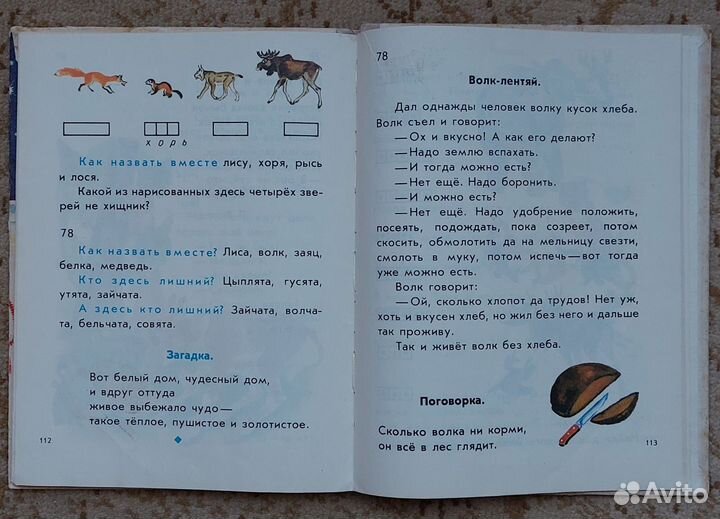 хорь
Как назвать вместе лису, хоря, рысь
и лося.
Какой из нарисованных здесь четырёх зве-
рей не хищник?
78
Как назвать вместе? Лиса, волк, заяц,
белка, медведь.
Кто здесь лишний? Цыплята, гусята,
утята, зайчата.
А здесь кто лишний? Зайчата, волча-
та, бельчата, совята.
Загадка.
Вот белый дом, чудесный дом,
и вдруг оттуда
живое выбежало чудо—
такое тёплое, пушистое и золотистое.
112
78
Волк-лентяй.
Дал однажды человек волку кусок хлеба.
Волк съел и говорит:
—Ох и вкусно! А как его делают?
—Надо землю вспахать.
—И тогда можно есть?
—Нет ещё. Надо боронить.
—И можно есть?
—Нет ещё. Надо удобрение положить,
посеять, подождать, пока созреет, потом
скосить, обмолотить да на мельницу свезти,
смолоть в муку, потом испечь—вот тогда
уже можно есть.
Волк говорит:
—Ой, сколько хлопот да трудов! Нет уж,
хоть и вкусен хлеб, но жил без него и дальше
так проживу.
Так и живёт волк без хлеба.
Поговорка.
Сколько волка ни корми,
он всё в лес глядит.
113
Avito